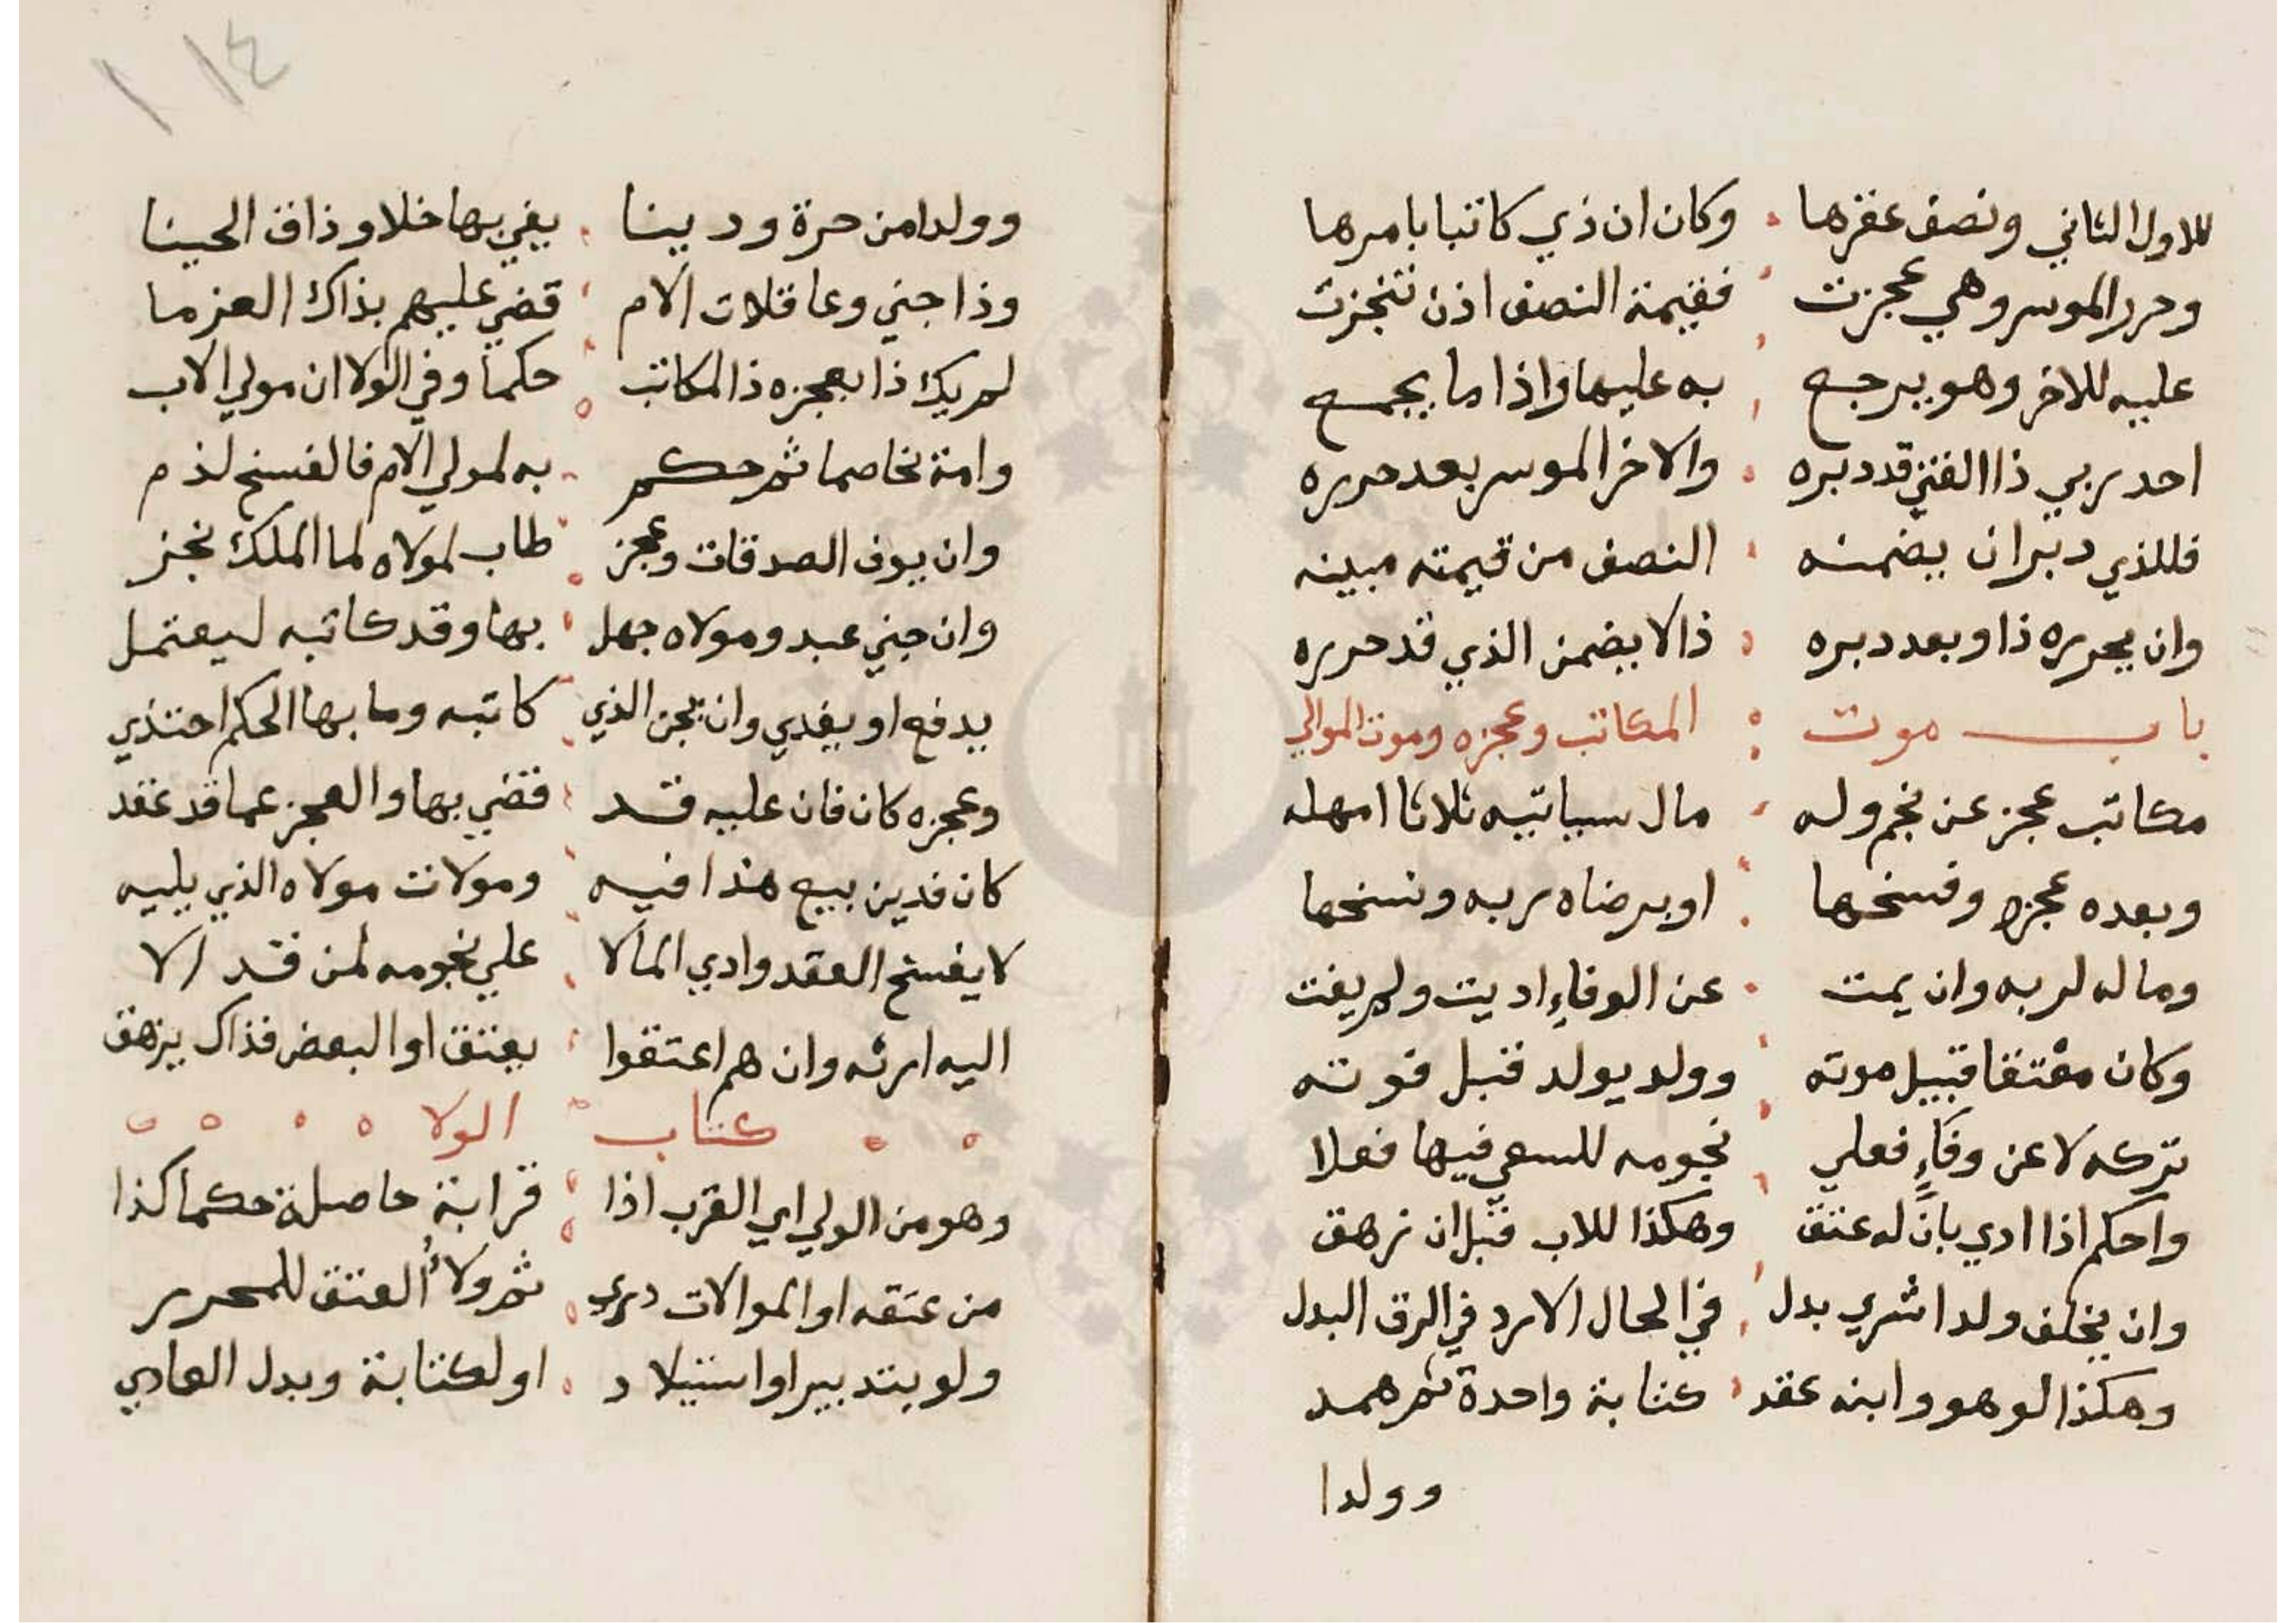 للاول الثاني ونصف عقرها وكان ان ذي كاتبا بامرها
وحرر الموسر وهي عجزت فقيمة النصف اذن تنجزت
عليه للاخر وهو يرجع به عليها واذا ما يجمع
احد ربي ذا الفتي قد دبره والاخر الموسر بعد حرره
فللذي دبر ان يضمنه النصف من قيمته مبينه
وان يحرره ذا وبعد دبره ذا لا يضمن الذي قد حرره
باب موت المكاتب وعجزه وموت الموالي
مكاتب عجز عن نجم وله مال سياتيه ثلاثا امهله
وبعده عجزه وفسخها او برضاه ربه ونسخها
وماله لربه وان يمت عن الوفاء اديت ولم يفت
وكان معتقا قبيل موته وولد يولد قبل فوته
تركه لا عن وفاء فعلي نجومه للسعي فيها فعلا
واحكم اذا ادي بان له عتق وهكذا للاب قبل ان زهق
وان يخلف ولدا شري بدل في الحال الا رد في الرق البدل
وهكذا لو هو وابنه عقد كتابة واحدة ثم همد
وولدا
١١٤
وولدا من حرة ودينا يفي بها خلا وذاق الحينا
وذا جني وعاقلات الام قضي عليهم بذاك العزما
لم يك ذا بعجزه ذا المكاتب حكما وفي الولا ان مولي الاب
وامة تخاصما ثم حكم به لمولي الام فالفسخ لذم
وان يوف الصدقات وعجز طاب لمولاه لما الملك نجز
وان جني عبد ومولاه جهل بها وقد كاتبه ليعتمل
يدفع او يفدي وان يجن الذي كاتبه وما بها الحكم احتذي
وعجزه كان فان عليه قد قضي بها والعجز عما قد عقد
كان فدين بيع هذا فيه ومولات مولاه الذي يليه
لا يفسخ العقد وادي المالا علي نجومه لمن قد الا
اليه ارثه وان هم اعتقوا يعتق او البعض فذاك يزهق
كتاب الولا
وهو من الولي اي القرب اذا قرابة حاصلة حكما كذا
من عتقه او الموالات دري ثم ولاء العتق للمحرر
ولو بتدبير او استيلاد او لكتابة وبدل العادي